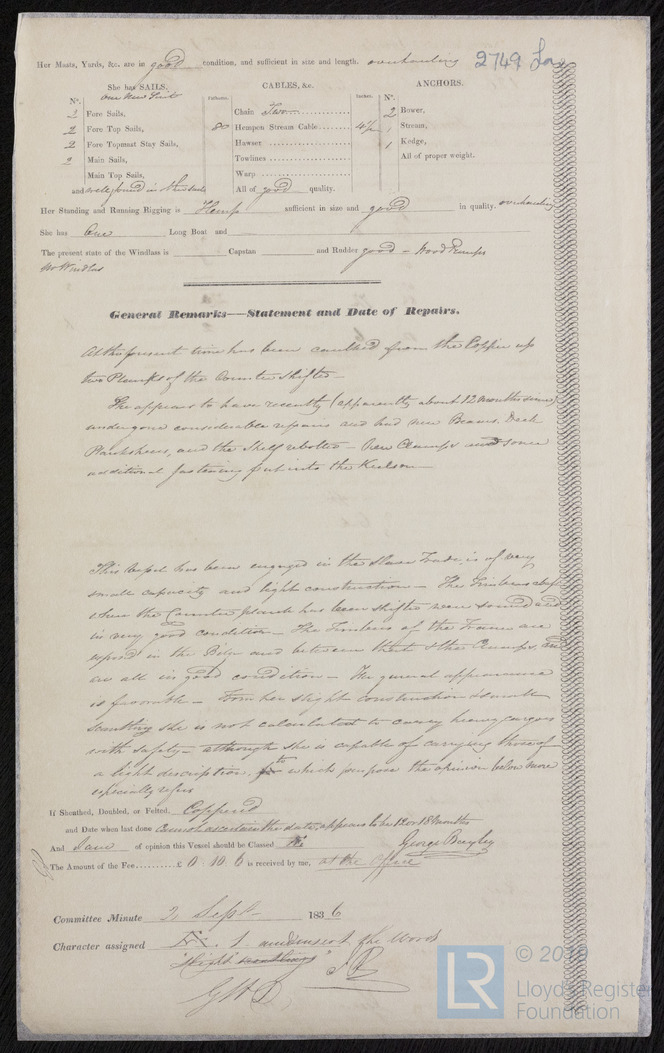 Her Masts, Yards, &c. are in good condition, and sufficient in size and length. overhauling
2749 Lon
She has SAILS. CABLES, &c. ANCHORS.
one new Suit
No. Fathoms. Inches. No.
2 Fore Sails, Chain Two 2 Bower,
2 Fore Top Sails, 80 Hempen Stream Cable 4½ 1 Stream,
2 Fore Topmast Stay Sails, Hawser 1 Kedge,
2 Main Sails, Towlines All of proper weight.
Main Top Sails, Warp
and well found in other sails All of good quality.
Her Standing and Running Rigging is Hemp sufficient in size and good in quality. overhauling
She has One Long Boat and
The present state of the Windlass is Capstan and Rudder good – Wood Pumps
No Windlass
General Remarks—Statement and Date of Repairs.
At the present time has been caulked from the Copper up
two Planks of the Counter shifted –
She appears to have recently (apparently about 12 months since)
undergone considerable repairs and had new Beams, Deck
Planksheers, and the Shelf rebolted – New Clamps and some
additional fastening put into the Keelson —
This Vessel has been engaged in the Slave Trade, is of very
small capacity and light construction – The Timbers
where the Counter plank has been shifted were sound and
in very good condition – The Timbers of the Frame are
exposed in the Bilge and between that & the Clamps, and
are all in good condition – The general appearance
is favorable – From her slight construction & small
scantling she is not calculated to convey heavy cargoes
with safety – although she is capable of carrying those of
a light description, for to which purpose the opinion below more
especially refers
If Sheathed, Doubled, or Felted, Coppered
and Date when last done Cannot ascertain the date, appears to be 12 or 18 months
And I am of opinion this Vessel should be Classed
George Bayley
The Amount of the Fee £ 0 . 10 . 6 is received by me, at the Office
Committee Minute 2 Sept 1836
Character assigned 1 and insert the Words
"Slight scantlings"
© 2019
LR
Lloyd's Register
Foundation